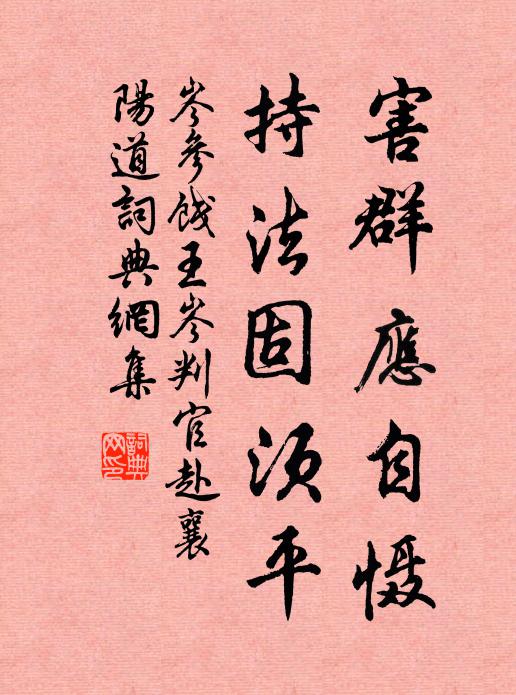 害群應自慑
持法固須平
岑參餞王岑判官赴襄
陽道詞典網集
詞典
网印